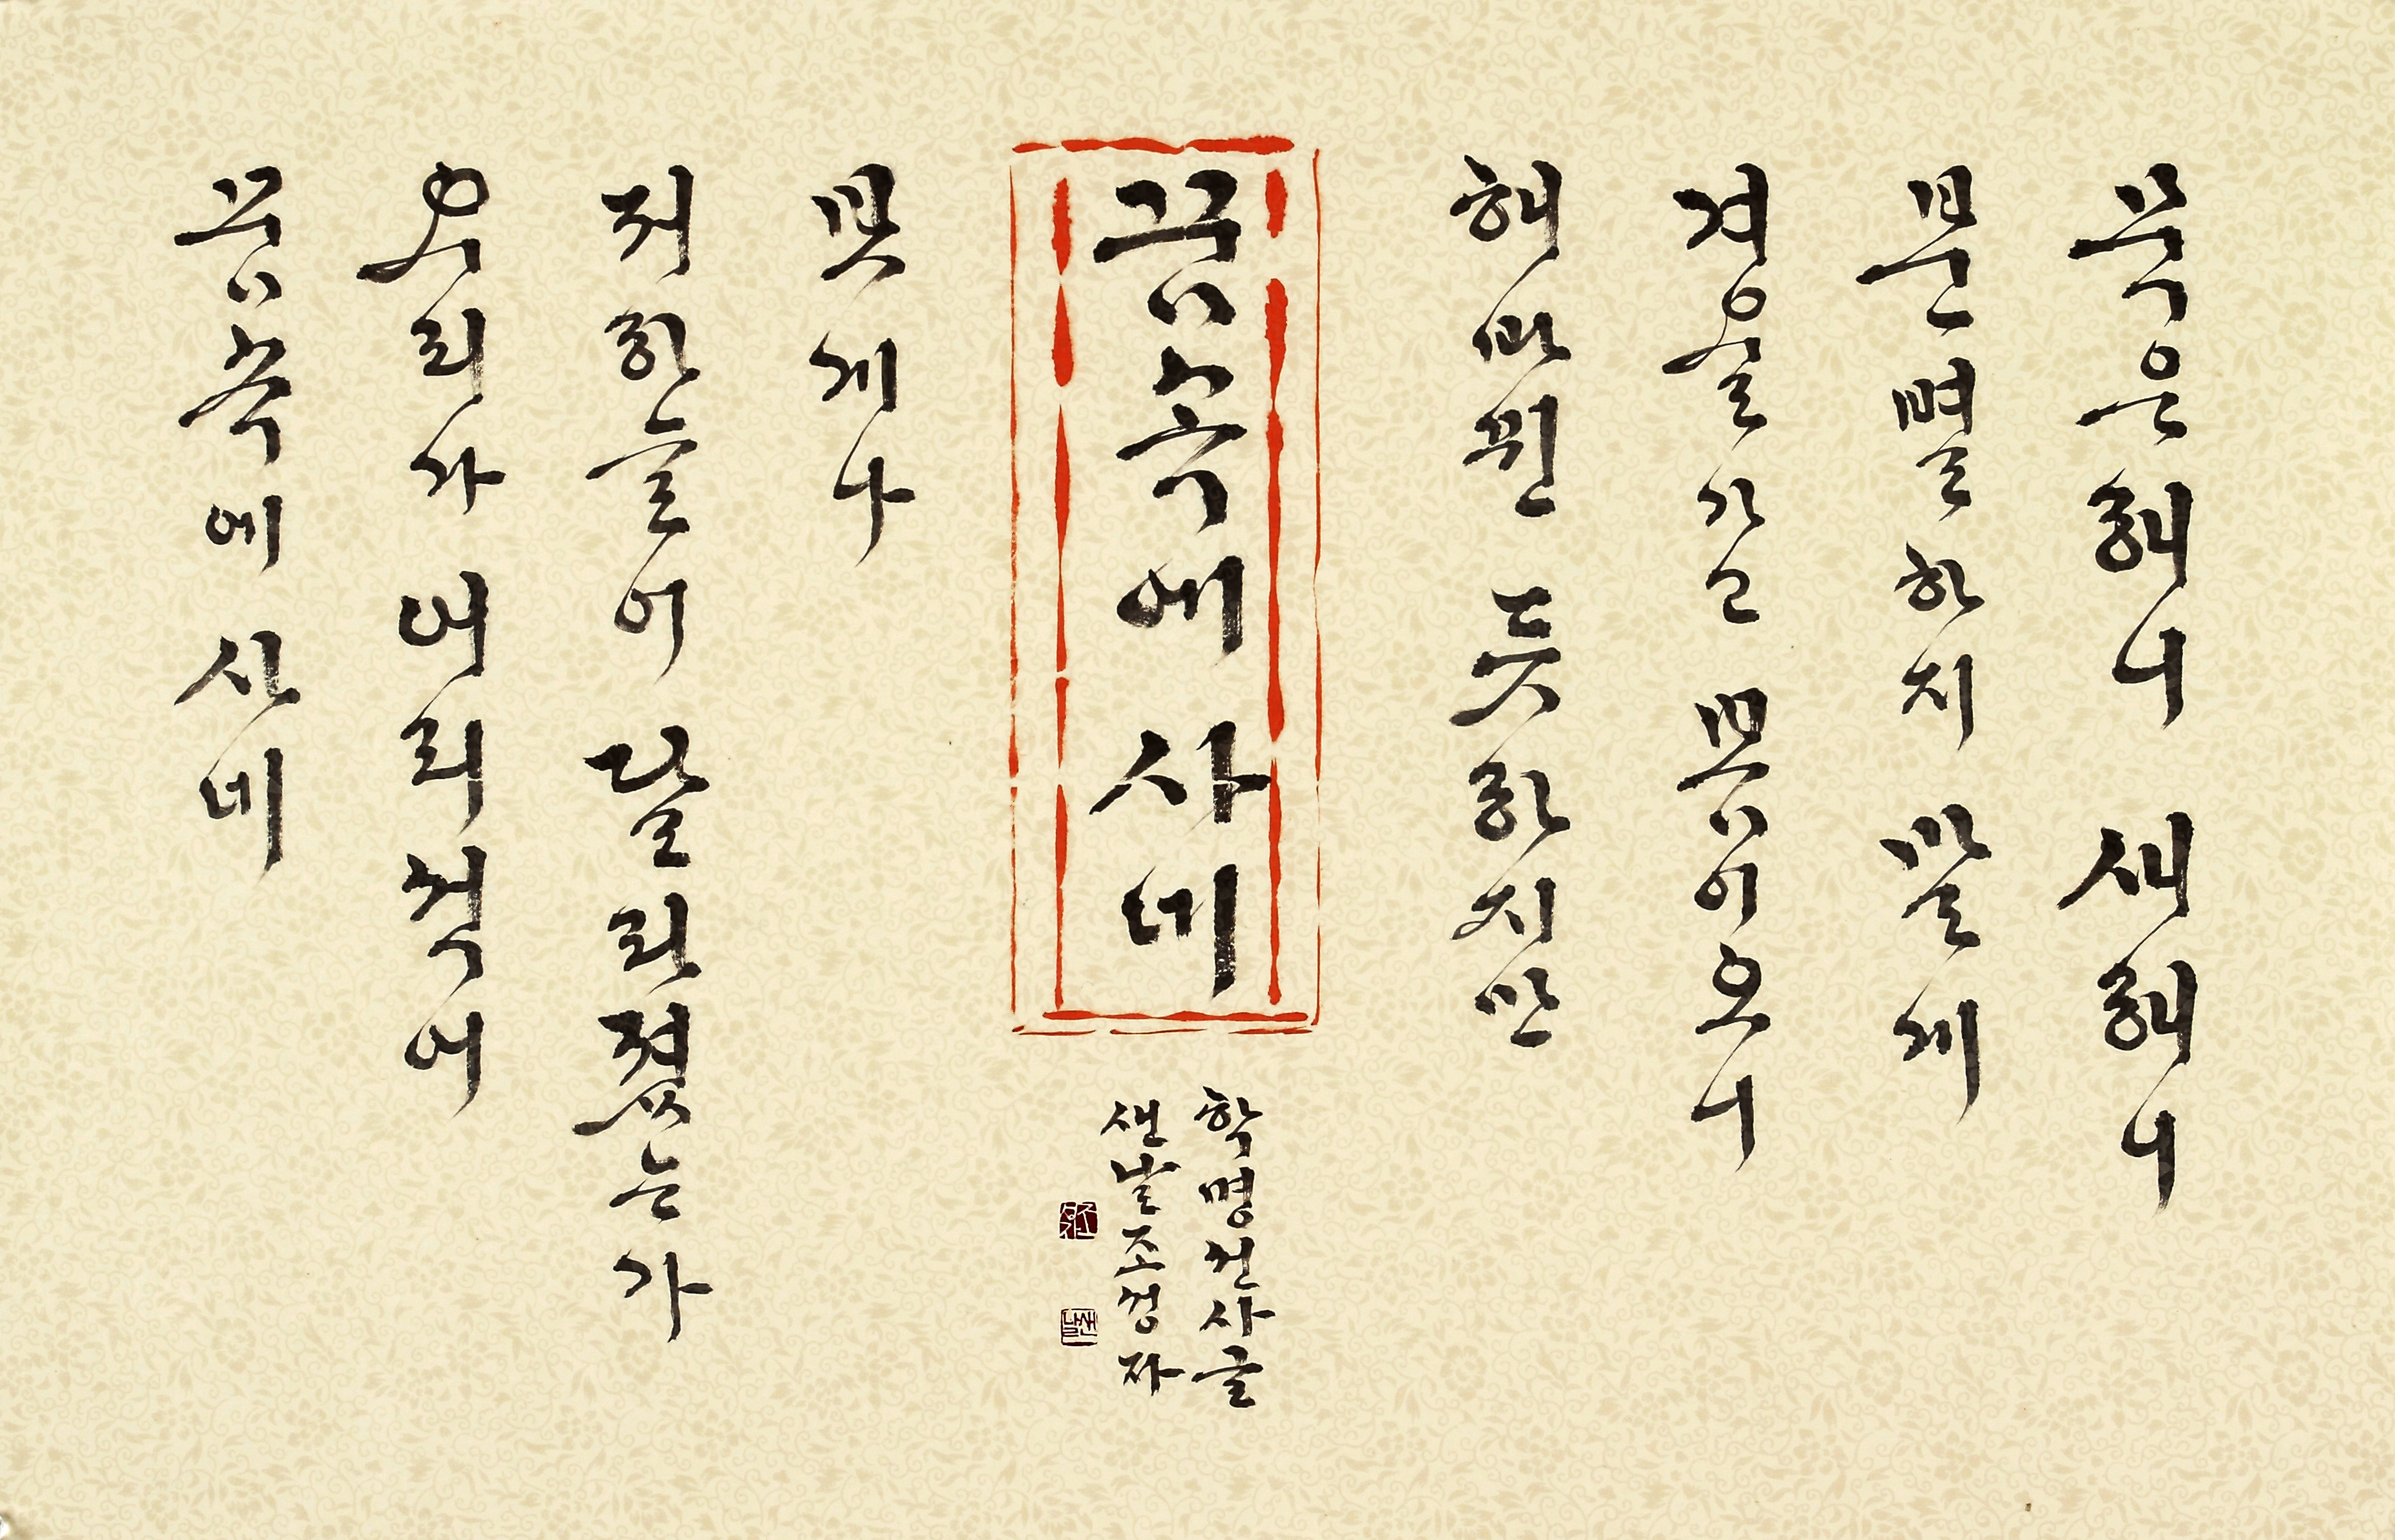 묵은해니 새해니
분별하지 말게
겨울 가고 봄이 오니
해 바뀐 듯하지만
꿈속에 사네
학명선사 글
샌날 조성자
보게나
저 하늘이 달라졌는가
우리가 어리석어
꿈속에 사네